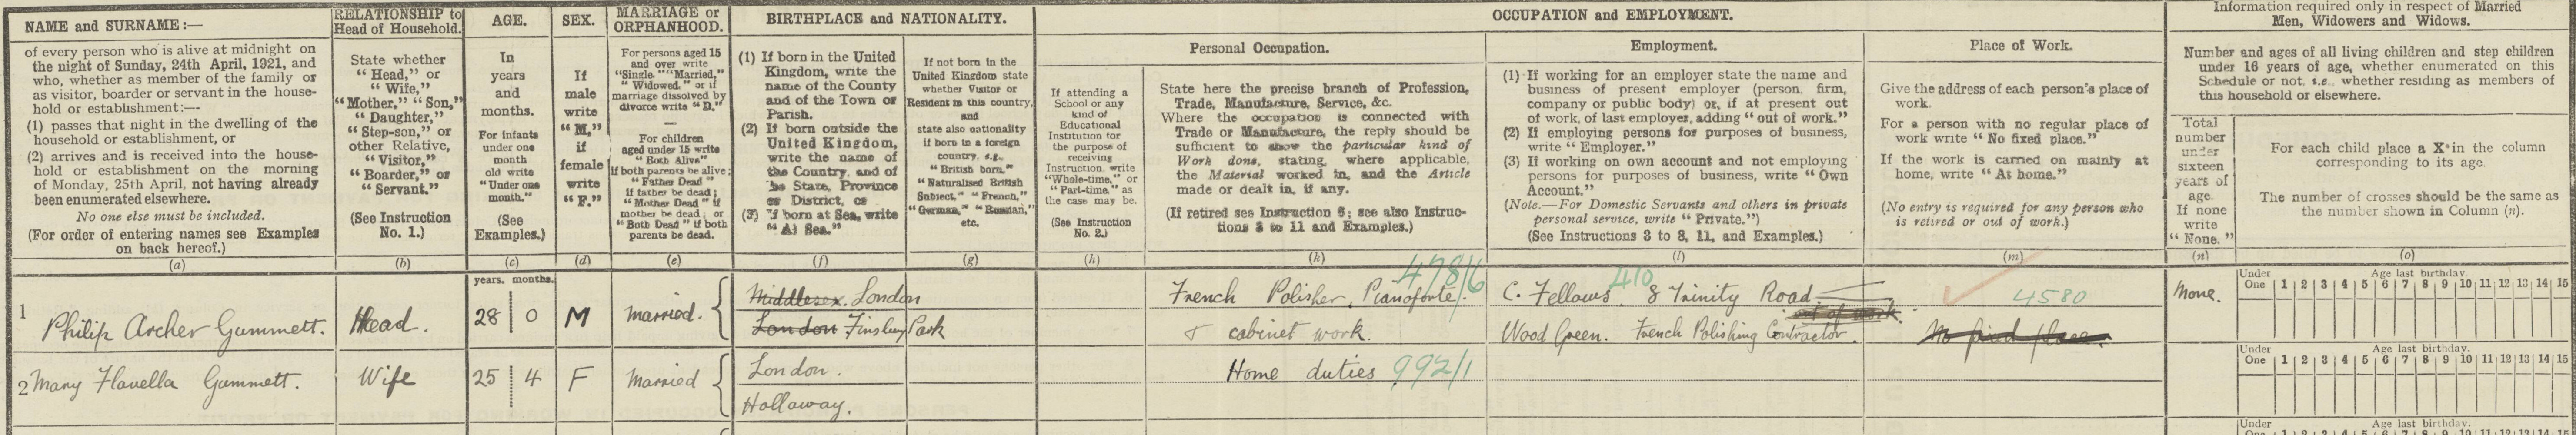 NAME and SURNAME:—
of every person who is alive at midnight on
the night of Sunday, 24th April, 1921, and
who, whether as member of the family or
as visitor, boarder or servant in the house-
hold or establishment:—
(1) passes that night in the dwelling of the
household or establishment, or
(2) arrives and is received into the house-
hold or establishment on the morning
of Monday, 25th April, not having already
been enumerated elsewhere.
No one else must be included.
(For order of entering names see Examples
on back hereof.)
(a)
RELATIONSHIP to
Head of Household.
State whether
"Head," or
"Wife,"
"Mother," "Son,"
"Daughter,"
"Step-son," or
other Relative,
"Visitor,"
"Boarder," or
"Servant."
(See Instruction
No. 1.)
(b)
AGE.
In
years
and
months.
For infants
under one
month
old write
"Under one
month."
(See
Examples.)
(c)
SEX.
If
male
write
"M,"
if
female
write
"F."
(d)
MARRIAGE or
ORPHANHOOD.
For persons aged 15
and over write
"Single," "Married,"
"Widowed," or if
marriage dissolved by
divorce write "D."
—
For children
aged under 15 write
"Both Alive"
if both parents be alive;
"Father Dead"
if father be dead;
"Mother Dead" if
mother be dead; or
"Both Dead" if both
parents be dead.
(e)
BIRTHPLACE and NATIONALITY.
(1) If born in the United
Kingdom, write the
name of the County
and of the Town or
Parish.
(2) If born outside the
United Kingdom,
write the name of
the Country, and of
the State, Province
or District, or
(3) If born at Sea, write
"At Sea."
(f)
If not born in the
United Kingdom state
whether Visitor or
Resident in this country,
and
state also nationality
if born in a foreign
country, e.g.,
"British born,"
"Naturalised British
Subject," "French,"
"German," "Russian,"
etc.
(g)
OCCUPATION and EMPLOYMENT.
If attending a
School or any
kind of
Educational
Institution for
the purpose of
receiving
Instruction, write
"Whole-time," or
"Part-time," as
the case may be.
(See Instruction
No. 2.)
(h)
Personal Occupation.
State here the precise branch of Profession,
Trade, Manufacture, Service, &c.
Where the occupation is connected with
Trade or Manufacture, the reply should be
sufficient to show the particular kind of
Work done, stating, where applicable,
the Material worked in, and the Article
made or dealt in, if any.
(If retired see Instruction 6; see also Instruc-
tions 3 to 11 and Examples.)
(k)
Employment.
(1) If working for an employer state the name and
business of present employer (person, firm,
company or public body) or, if at present out
of work, of last employer, adding "out of work."
(2) If employing persons for purposes of business,
write "Employer."
(3) If working on own account and not employing
persons for purposes of business, write "Own
Account."
(Note.—For Domestic Servants and others in private
personal service, write "Private.")
(See Instructions 3 to 8, 11, and Examples.)
(l)
Place of Work.
Give the address of each person's place of
work.
For a person with no regular place of
work write "No fixed place."
If the work is carried on mainly at
home, write "At home."
(No entry is required for any person who
is retired or out of work.)
(m)
Information required only in respect of Married
Men, Widowers and Widows.
Number and ages of all living children and step children
under 16 years of age, whether enumerated on this
Schedule or not, i.e., whether residing as members of
this household or elsewhere.
Total
number
under
sixteen
years of
age.
If none
write
"None."
(n)
For each child place a X in the column
corresponding to its age.
The number of crosses should be the same as
the number shown in Column (n).
(o)
years. months.
1 Philip Archer Gammett. Head. 28 0 M Married.
Middlesex. London
London Finsbury Park
French Polisher, Pianoforte. 478/6
& cabinet work.
C. Fellows 410 8 Trinity Road
out of work.
Wood Green. French Polishing Contractor.
4580
No fixed place.
None.
Under Age last birthday.
One 1 2 3 4 5 6 7 8 9 10 11 12 13 14 15
2 Mary Flavella Gammett. Wife 25 4 F Married
London.
Hollaway.
Home duties 992/1
Under Age last birthday.
One 1 2 3 4 5 6 7 8 9 10 11 12 13 14 15
Under Age last birthday.
One 1 2 3 4 5 6 7 8 9 10 11 12 13 14 15